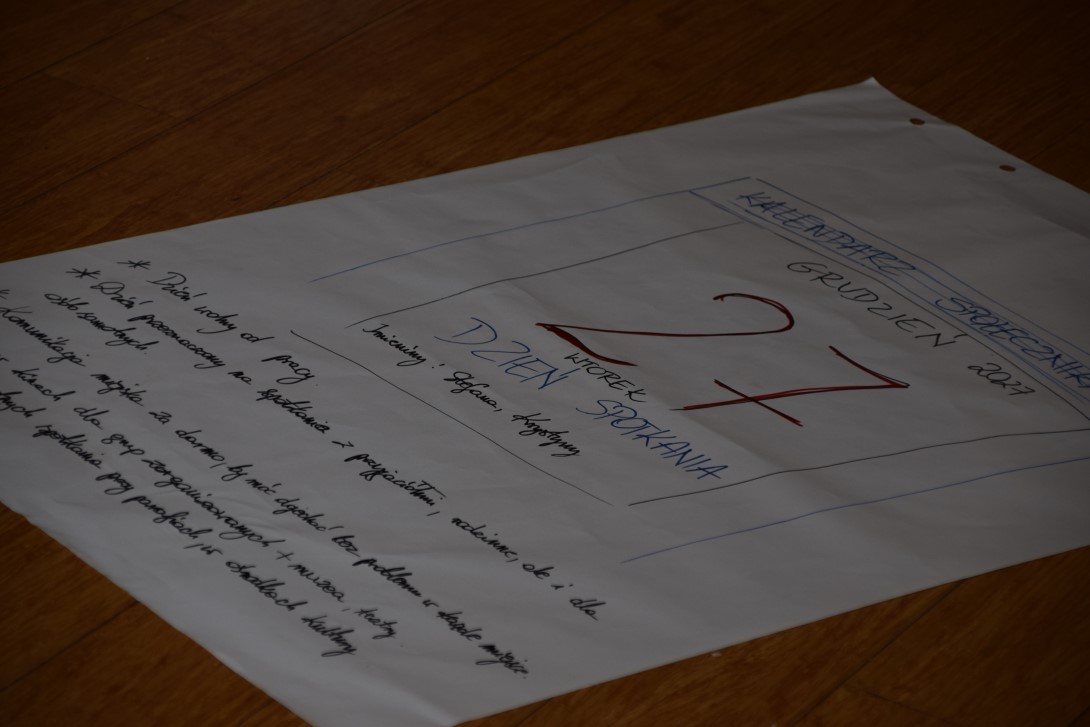 KALENDARZ SPOŁECZNIKA
GRUDZIEŃ 2027
27
WTOREK
DZIEŃ SPOTKANIA
Imieniny: Stefana, Krystyny
* Dzień wolny od pracy.
* Dzień przeznaczony na spotkania z przyjaciółmi, rodzinne, ale i dla
osób samotnych.
* Komunikacja miejska za darmo, by móc dojechać bez problemu w każde miejsce.
kinach dla grup zorganizowanych + muzea, teatry
spotkania przy parafiach, w ośrodkach kultury